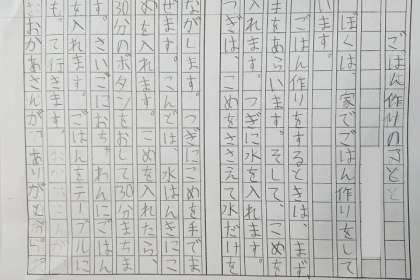 ごはん作りのこと
ぼくは、家でごはん作りをして
います。
ごはん作りをするときは、まず
をあらいます。そして、こめを
入れます。つぎに水を入れます。
つぎは、こめをささえて水だけを
ながします。つぎにこめを手でま
ぜます。こんどは、水はんきにこ
めを入れます。こめを入れたら、
30分のボタンをおして30分まちま
す。さいごにおちゃわんにごはん
を入れます。ごはんをテーブルに
もって行きます。
おかあさんが「ありがとう」。